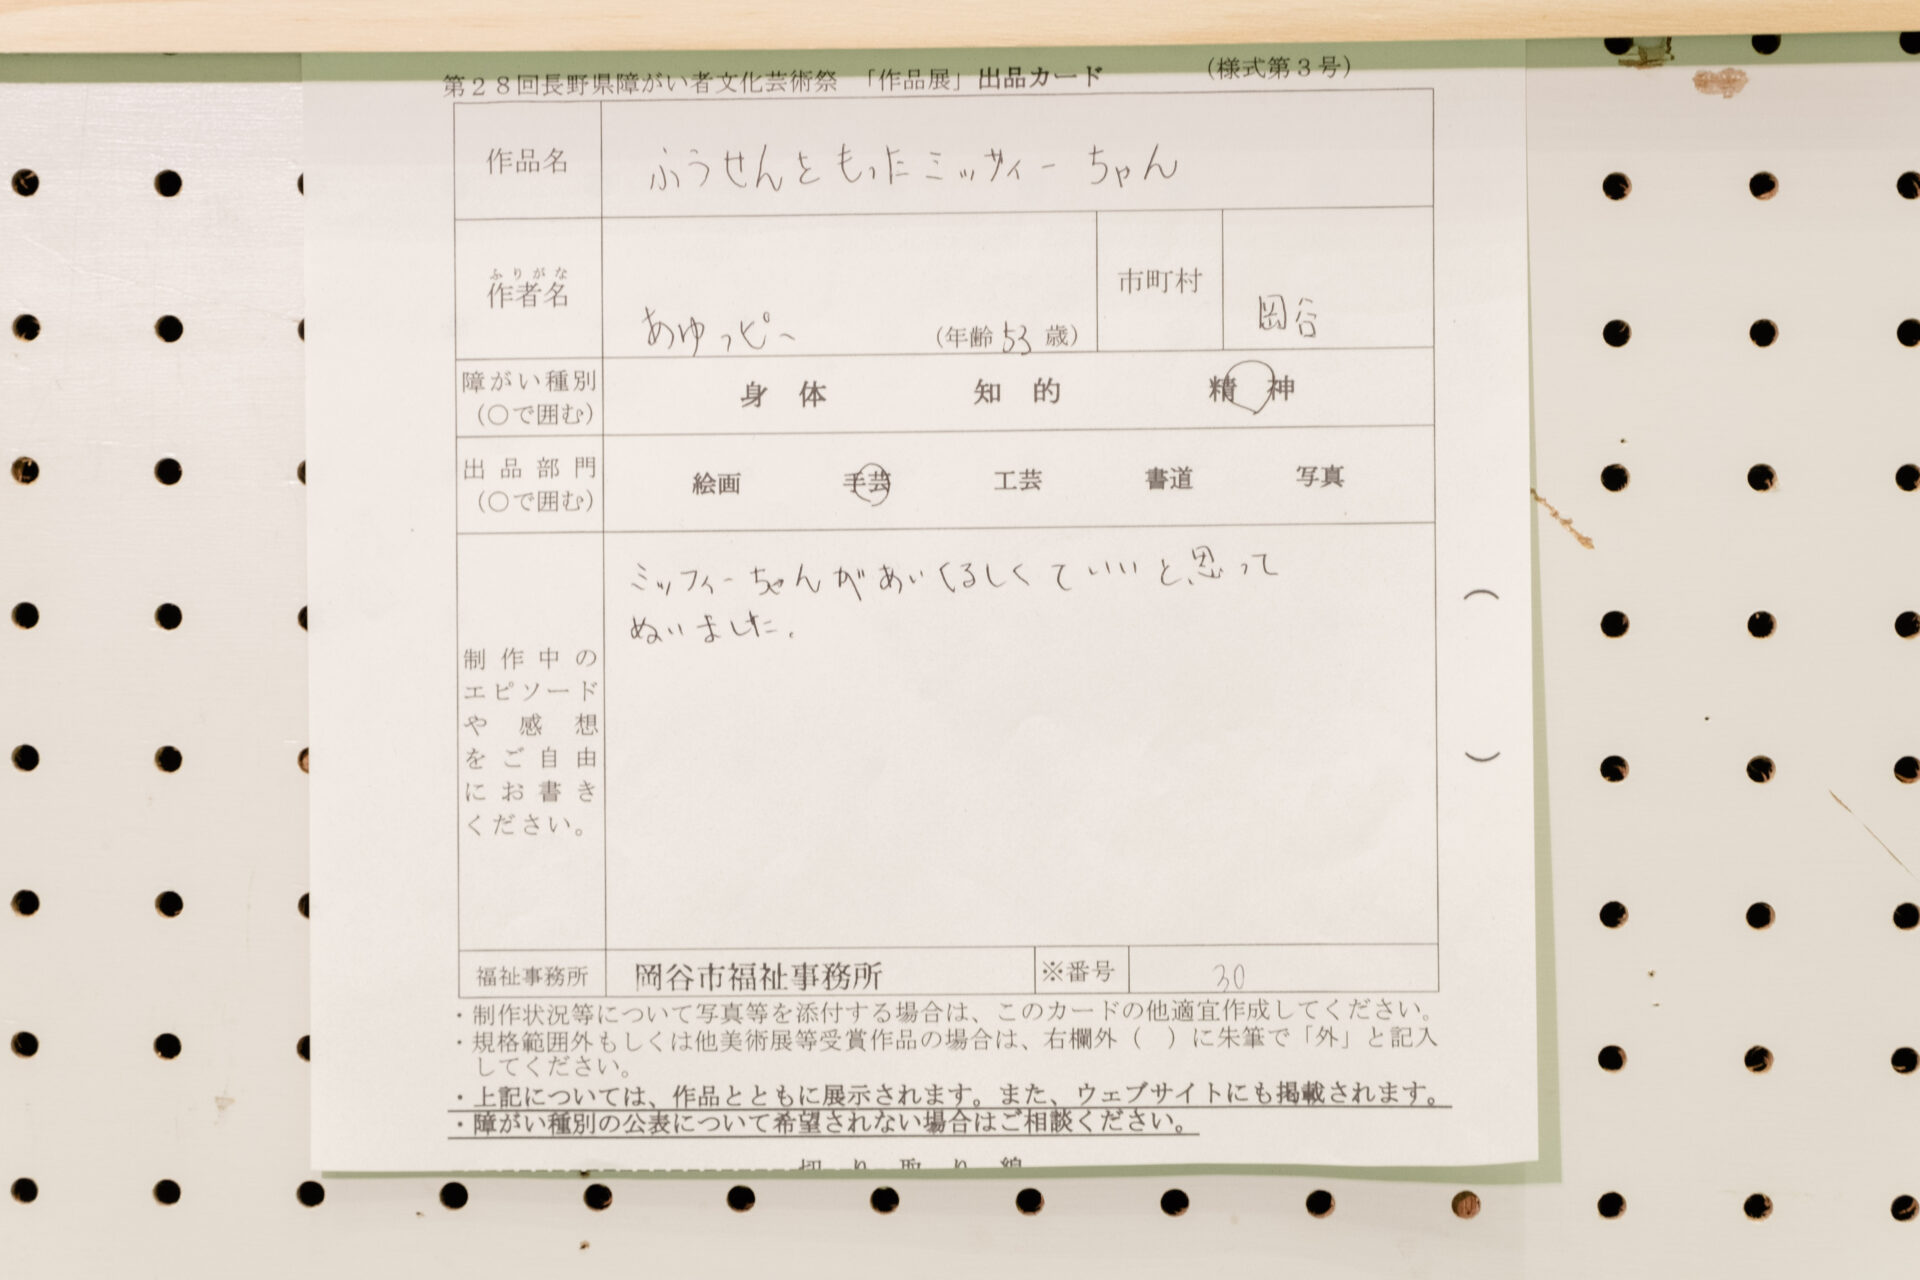 第28回長野県障がい者文化芸術祭 「作品展」出品カード (様式第3号)
作品名 ふうせんともったミッフィーちゃん
ふりがな
作者名 あゆっぴー (年齢53歳) 市町村 岡谷
障がい種別 (○で囲む) 身体 知的 精神
出品部門 (○で囲む) 絵画 手芸 工芸 書道 写真
ミッフィーちゃんがあいくるしくていいと思って
ぬいました。
制作中の
エピソード
や感想
をご自由
にお書き
ください。
福祉事務所 岡谷市福祉事務所 ※番号 30
・制作状況等について写真等を添付する場合は、このカードの他適宜作成してください。
・規格範囲外もしくは他美術展等受賞作品の場合は、右欄外( )に朱筆で「外」と記入
してください。
・上記については、作品とともに展示されます。また、ウェブサイトにも掲載されます。
・障がい種別の公表について希望されない場合はご相談ください。
切り取り線